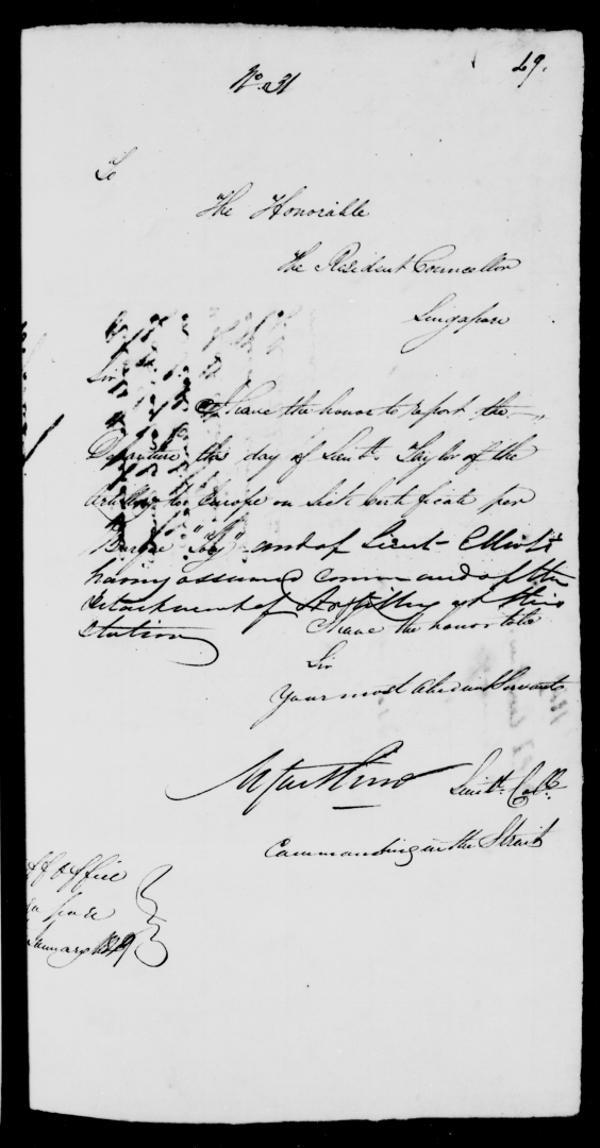 49.
No. 31
To
The Honorable
The Resident Councellor
Singapore
Sir
I have the honor to report the
Departure this day of Lieutt. Taylor of the
Artillery to Europe on Sick Certificate per
Barque and of Lieut- Elliott's
having assumed command of the
Detachment of Artillery at this
Station
I have the honor to be
Sir
Your most obedient Servant
Lieutt. Coll.
Commanding in the Straits
Office
January 1849